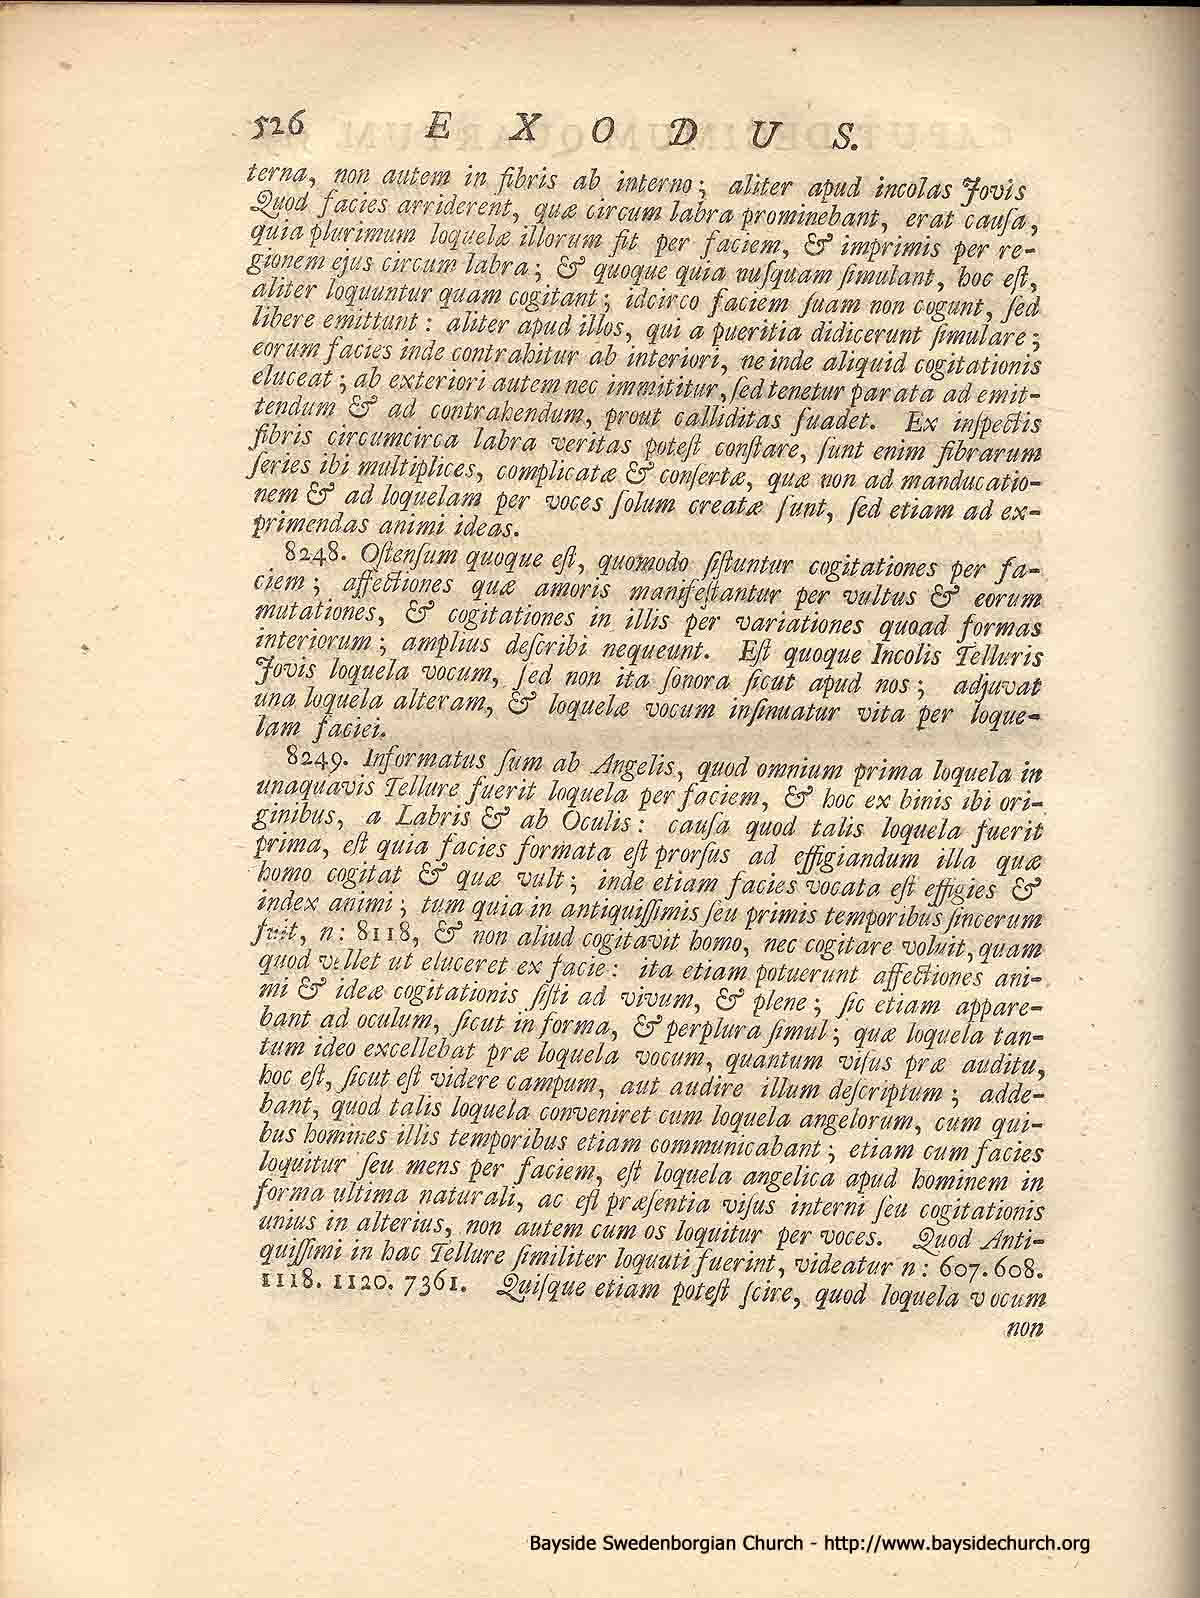 526 EXODUS.
terna, non autem in fibris ab interno; aliter apud incolas Jovis
Quod facies arriderent, quæ circum labra prominebant, erat cauſa,
quia plurimum loquelæ illorum fit per faciem, & imprimis per re-
gionem ejus circum labra; & quoque quia nuſquam ſimulant, hoc eſt,
aliter loquuntur quam cogitant; idcirco faciem ſuam non cogunt, ſed
libere emittunt: aliter apud illos, qui a pueritia didicerunt ſimulare;
eorum facies inde contrahitur ab interiori, ne inde aliquid cogitationis
eluceat; ab exteriori autem nec immititur, ſed tenetur parata ad emit-
tendum & ad contrahendum, prout calliditas ſuadet. Ex inſpectis
fibris circumcirca labra veritas poteſt conſtare, ſunt enim fibrarum
ſeries ibi multiplices, complicatæ & conſertæ, quæ non ad manducatio-
nem & ad loquelam per voces ſolum creatæ ſunt, ſed etiam ad ex-
primendas animi ideas.
8248. Oſtenſum quoque eſt, quomodo ſiſtuntur cogitationes per fa-
ciem; affectiones quæ amoris manifeſtantur per vultus & eorum
mutationes, & cogitationes in illis per variationes quoad formas
interiorum; amplius deſcribi nequeunt. Eſt quoque Incolis Telluris
Jovis loquela vocum, ſed non ita ſonora ſicut apud nos; adjuvat
una loquela alteram, & loquelæ vocum inſinuatur vita per loque-
lam faciei.
8249. Informatus ſum ab Angelis, quod omnium prima loquela in
unaquavis Tellure fuerit loquela per faciem, & hoc ex binis ibi ori-
ginibus, a Labris & ab Oculis: cauſa quod talis loquela fuerit
prima, eſt quia facies formata eſt prorſus ad effigiandum illa quæ
homo cogitat & quæ vult; inde etiam facies vocata eſt effigies &
index animi; tum quia in antiquiſſimis ſeu primis temporibus ſincerum
fuit, n: 8118, & non aliud cogitavit homo, nec cogitare voluit, quam
quod vellet ut eluceret ex facie: ita etiam potuerunt affectiones ani-
mi & ideæ cogitationis ſiſti ad vivum, & plene; ſic etiam appare-
bant ad oculum, ſicut in forma, & perplura ſimul; quæ loquela tan-
tum ideo excellebat præ loquela vocum, quantum viſus præ auditu,
hoc eſt, ſicut eſt videre campum, aut audire illum deſcriptum; adde-
bant, quod talis loquela conveniret cum loquela angelorum, cum qui-
bus homines illis temporibus etiam communicabant; etiam cum facies
loquitur ſeu mens per faciem, eſt loquela angelica apud hominem in
forma ultima naturali, ac eſt præſentia viſus interni ſeu cogitationis
unius in alterius, non autem cum os loquitur per voces. Quod Anti-
quiſſimi in hac Tellure ſimiliter loquuti fuerint, videatur n: 607. 608.
1118. 1120. 7361. Quiſque etiam poteſt ſcire, quod loquela vocum
non
Bayside Swedenborgian Church - http://www.baysidechurch.org